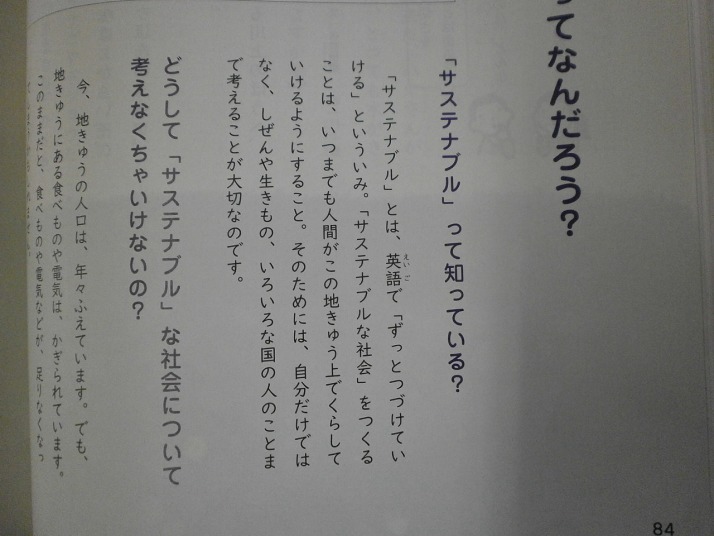 ってなんだろう？
「サステナブル」って知っている？
「サステナブル」とは、英語で「ずっとつづけてい
えいご
ける」といういみ。「サステナブルな社会」をつくる
ことは、いつまでも人間がこの地きゅう上でくらして
いけるようにすること。そのためには、自分だけでは
なく、しぜんや生きもの、いろいろな国の人のことま
で考えることが大切なのです。
どうして「サステナブル」な社会について
考えなくちゃいけないの？
今、地きゅうの人口は、年々ふえています。でも、
地きゅうにある食べものや電気は、かぎられています。
このままだと、食べものや電気などが、足りなくなっ
84